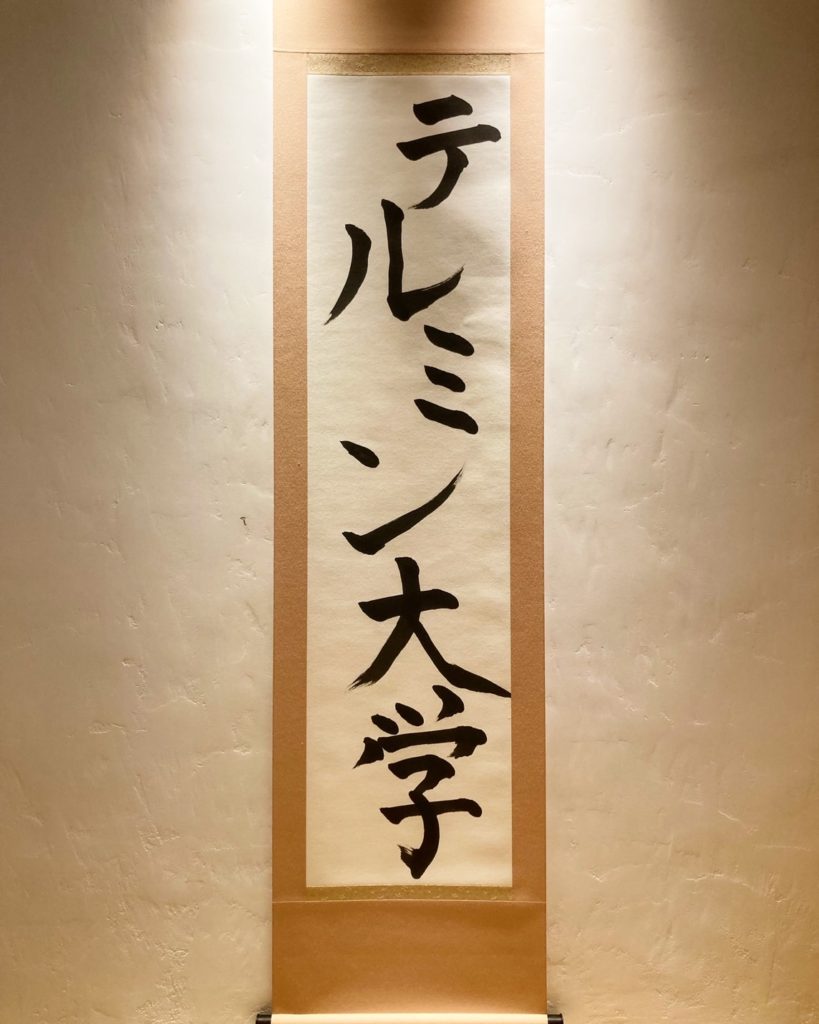 テルミン大学